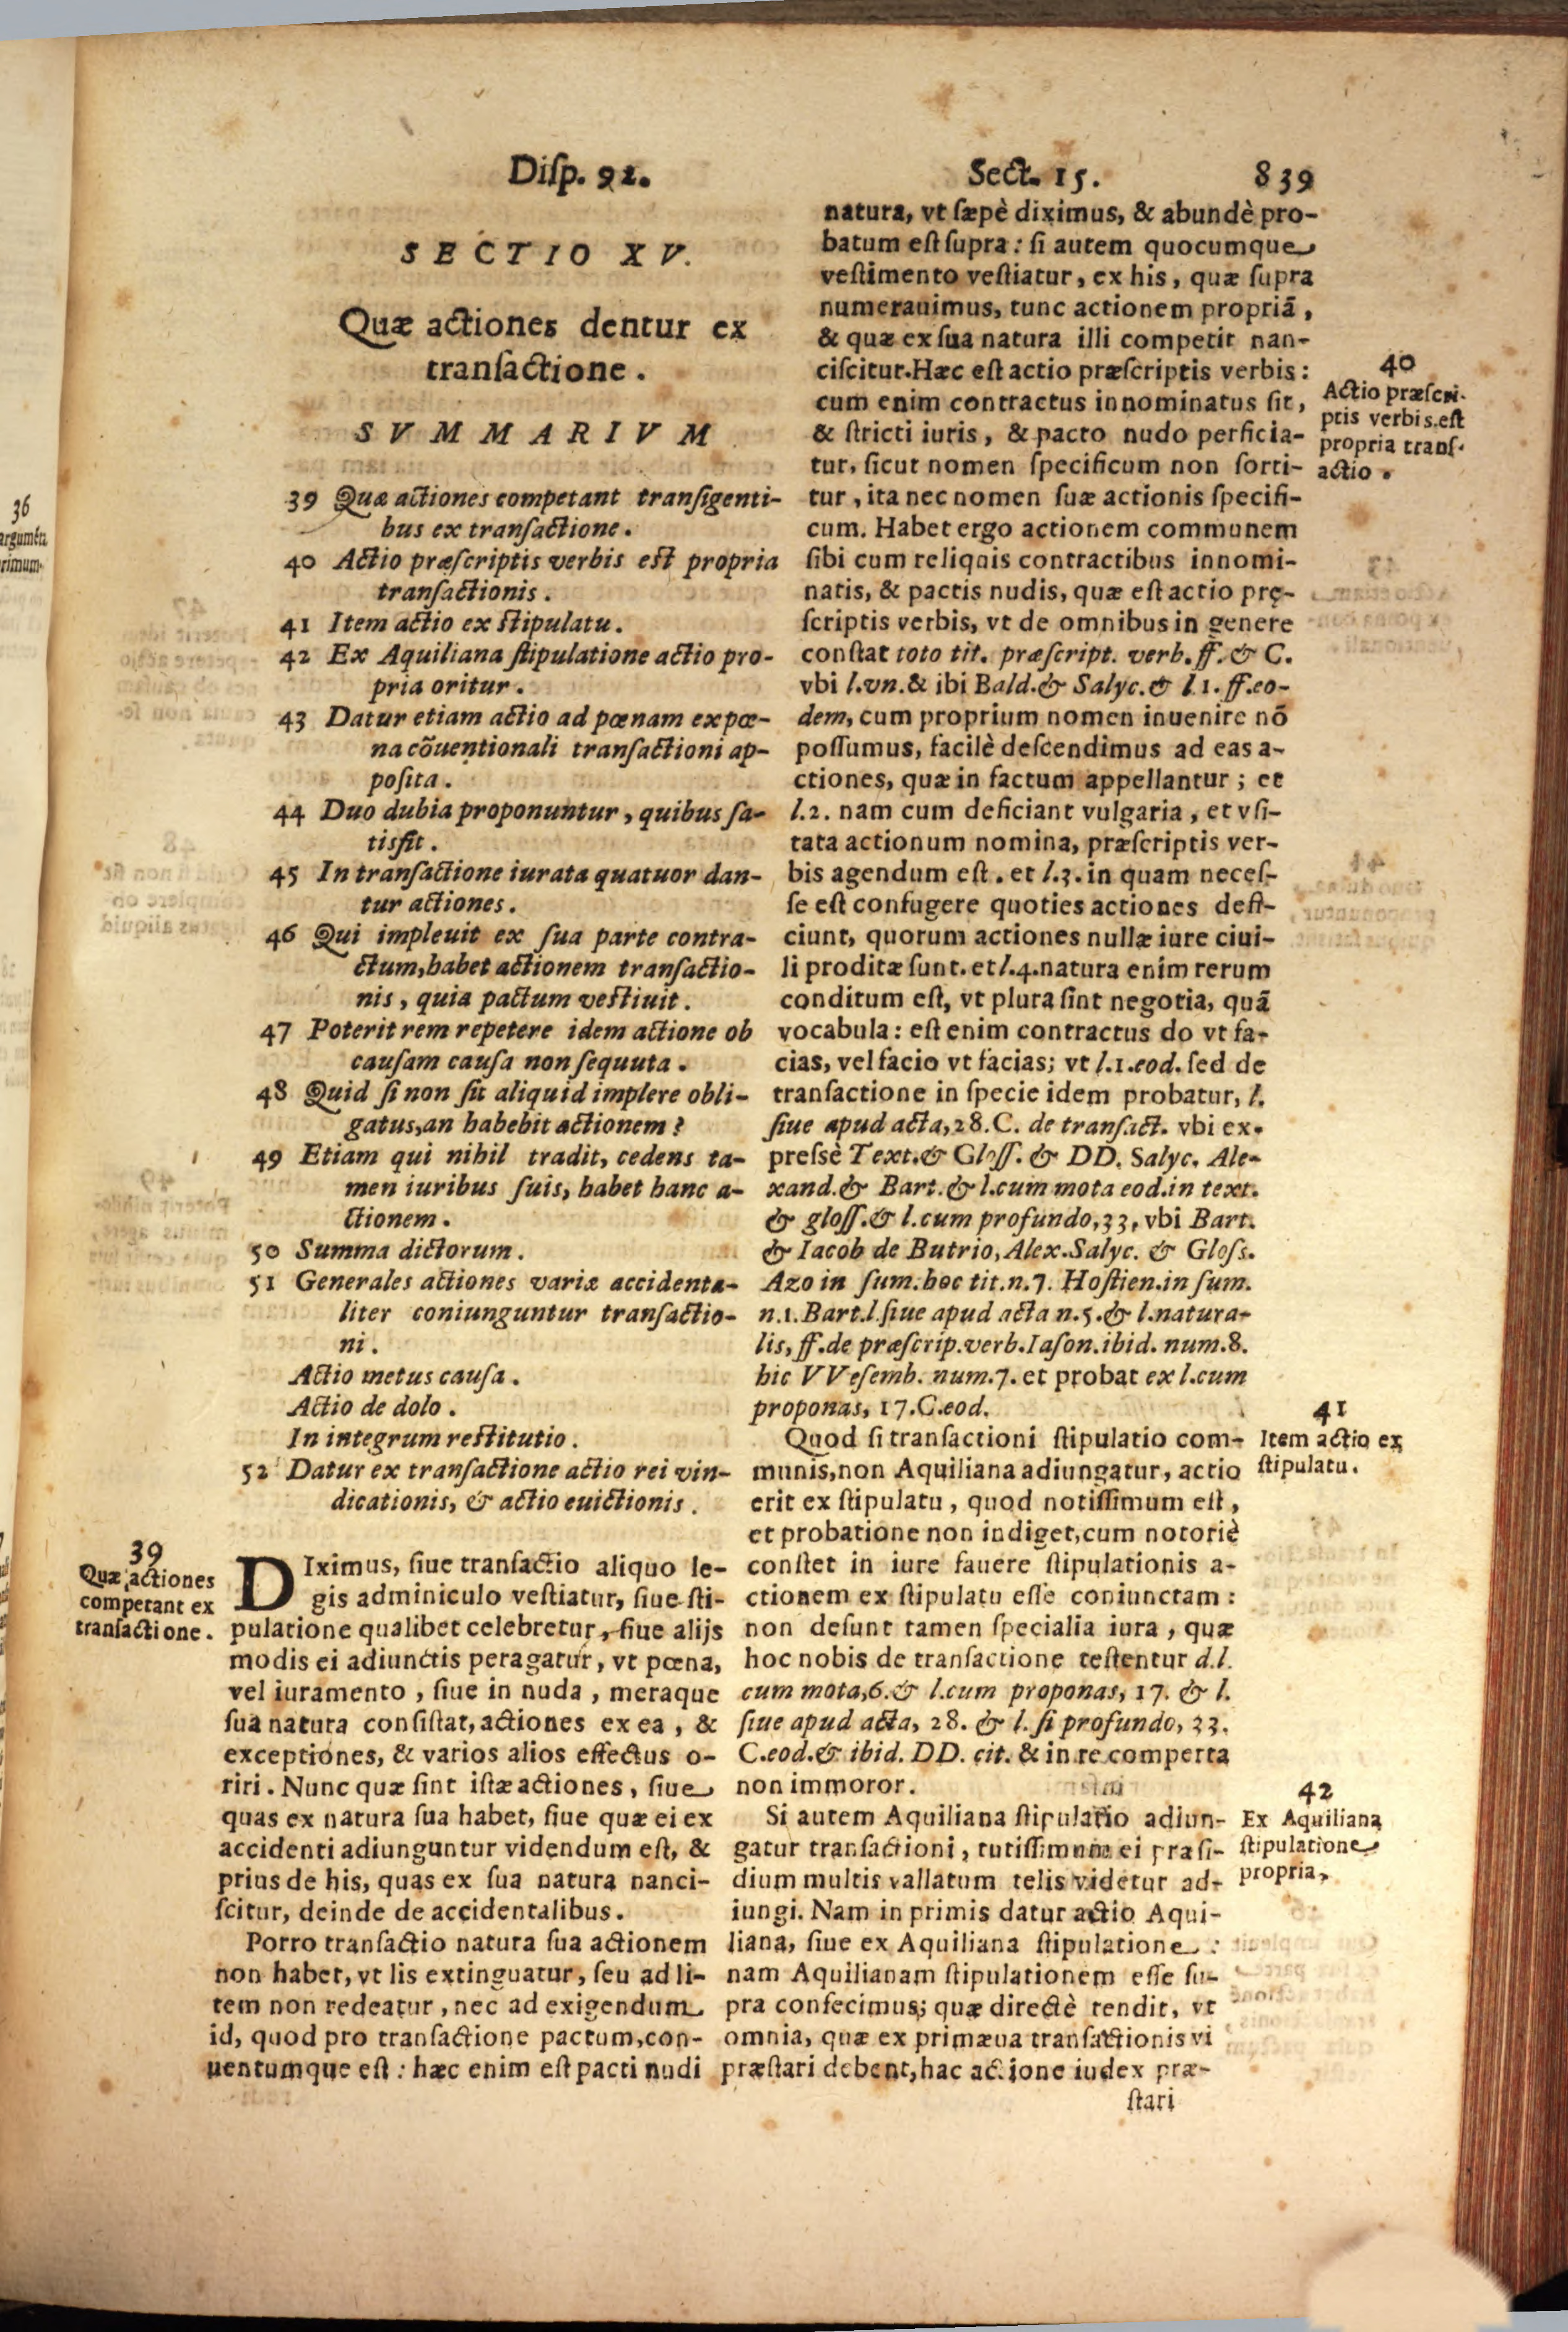 Diſp. 92.
SECTIO XV.
Quæ actiones dentur ex
tranſactione.
SVMMARIVM
39 Quæ actiones competant tranſigenti-
bus ex tranſactione.
40 Actio præſcriptis verbis eſt propria
tranſactionis.
41 Item actio ex ſtipulatu.
42 Ex Aquiliana ſtipulatione actio pro-
pria oritur.
43 Datur etiam actio ad pœnam ex pœ-
na cõuentionali tranſactioni ap-
poſita.
44 Duo dubia proponuntur, quibus ſa-
tisfit.
45 In tranſactione iurata quatuor dan-
tur actiones.
46 Qui impleuit ex ſua parte contra-
ctum, habet actionem tranſactio-
nis, quia pactum veſtiuit.
47 Poterit rem repetere idem actione ob
cauſam cauſa non ſequuta.
48 Quid ſi non ſit aliquid implere obli-
gatus, an habebit actionem?
49 Etiam qui nihil tradit, cedens ta-
men iuribus ſuis, habet hanc a-
ctionem.
50 Summa dictorum.
51 Generales actiones variæ accidenta-
liter coniunguntur tranſactio-
ni.
Actio metus cauſa.
Actio de dolo.
In integrum reſtitutio.
52 Datur ex tranſactione actio rei vin-
dicationis, & actio euictionis.
39
Quæ actiones
competant ex
tranſactione.
DIximus, ſiue tranſactio aliquo le-
gis adminiculo veſtiatur, ſiue ſti-
pulatione qualibet celebretur, ſiue alijs
modis ei adiunctis peragatur, vt pœna,
vel iuramento, ſiue in nuda, meraque
ſua natura conſiſtat, actiones ex ea, &
exceptiones, & varios alios effectus o-
riri. Nunc quæ ſint iſtæ actiones, ſiue
quas ex natura ſua habet, ſiue quæ ei ex
accidenti adiunguntur videndum eſt, &
prius de his, quas ex ſua natura nanci-
ſcitur, deinde de accidentalibus.
Porro tranſactio natura ſua actionem
non habet, vt lis extinguatur, ſeu ad li-
tem non redeatur, nec ad exigendum
id, quod pro tranſactione pactum, con-
uentumque eſt: hæc enim eſt pacti nudi
Sect. 15. 839
natura, vt ſæpè diximus, & abundè pro-
batum eſt ſupra: ſi autem quocumque
veſtimento veſtiatur, ex his, quæ ſupra
numerauimus, tunc actionem propriã,
& quæ ex ſua natura illi competit nan-
ciſcitur. Hæc eſt actio præſcriptis verbis:
cum enim contractus innominatus ſit,
& ſtricti iuris, & pacto nudo perficia-
tur, ſicut nomen ſpecificum non ſorti-
tur, ita nec nomen ſuæ actionis ſpecifi-
cum. Habet ergo actionem communem
ſibi cum reliquis contractibus innomi-
natis, & pactis nudis, quæ eſt actio prę-
ſcriptis verbis, vt de omnibus in genere
conſtat toto tit. præſcript. verb. ff. & C.
vbi l. vn. & ibi Bald. & Salyc. & l. 1. ff. eo-
dem, cum proprium nomen inuenire nõ
poſſumus, facilè deſcendimus ad eas a-
ctiones, quæ in factum appellantur; et
l. 2. nam cum deficiant vulgaria, et vſi-
tata actionum nomina, præſcriptis ver-
bis agendum eſt. et l. 3. in quam neceſ-
ſe eſt confugere quoties actiones defi-
ciunt, quorum actiones nullæ iure ciui-
li proditæ ſunt. et l. 4. natura enim rerum
conditum eſt, vt plura ſint negotia, quã
vocabula: eſt enim contractus do vt fa-
cias, vel facio vt facias; vt l. 1. eod. ſed de
tranſactione in ſpecie idem probatur, l.
ſiue apud acta, 28. C. de tranſact. vbi ex-
preſsè Text. & Gloſſ. & DD. Salyc. Ale-
xand. & Bart. & l. cum mota eod. in text.
& gloſſ. & l. cum profundo, 33, vbi Bart.
& Iacob de Butrio, Alex. Salyc. & Gloſs.
Azo in ſum. hoc tit. n. 7. Hoſtien. in ſum.
n. 1. Bart. l. ſiue apud acta n. 5. & l. natura-
lis, ff. de præſcrip. verb. Iaſon. ibid. num. 8.
hic VVeſemb. num. 7. et probat ex l. cum
proponas, 17. C. eod.
Quod ſi tranſactioni ſtipulatio com-
munis, non Aquiliana adiungatur, actio
erit ex ſtipulatu, quod notiſſimum eſt,
et probatione non indiget, cum notoriè
conſtet in iure fauere ſtipulationis a-
ctionem ex ſtipulatu eſſe coniunctam:
non deſunt tamen ſpecialia iura, quæ
hoc nobis de tranſactione teſtentur d. l.
cum mota, 6. & l. cum proponas, 17. & l.
ſiue apud acta, 28. & l. ſi profundo, 33.
C. eod. & ibid. DD. cit. & in re comperta
non immoror.
Si autem Aquiliana ſtipulatio adiun-
gatur tranſactioni, tutiſſimum ei præſi-
dium multis vallatum telis videtur ad-
iungi. Nam in primis datur actio Aqui-
liana, ſiue ex Aquiliana ſtipulatione:
nam Aquilianam ſtipulationem eſſe ſu-
pra confecimus; quæ directè tendit, vt
omnia, quæ ex primæua tranſactionis vi
præſtari debent, hac actione iudex præ-
ſtari
40
Actio præſcri-
ptis verbis eſt
propria tranſ-
actio.
41
Item actio ex
ſtipulatu.
42
Ex Aquiliana
ſtipulatione
propria,
36
argumẽt
rimum